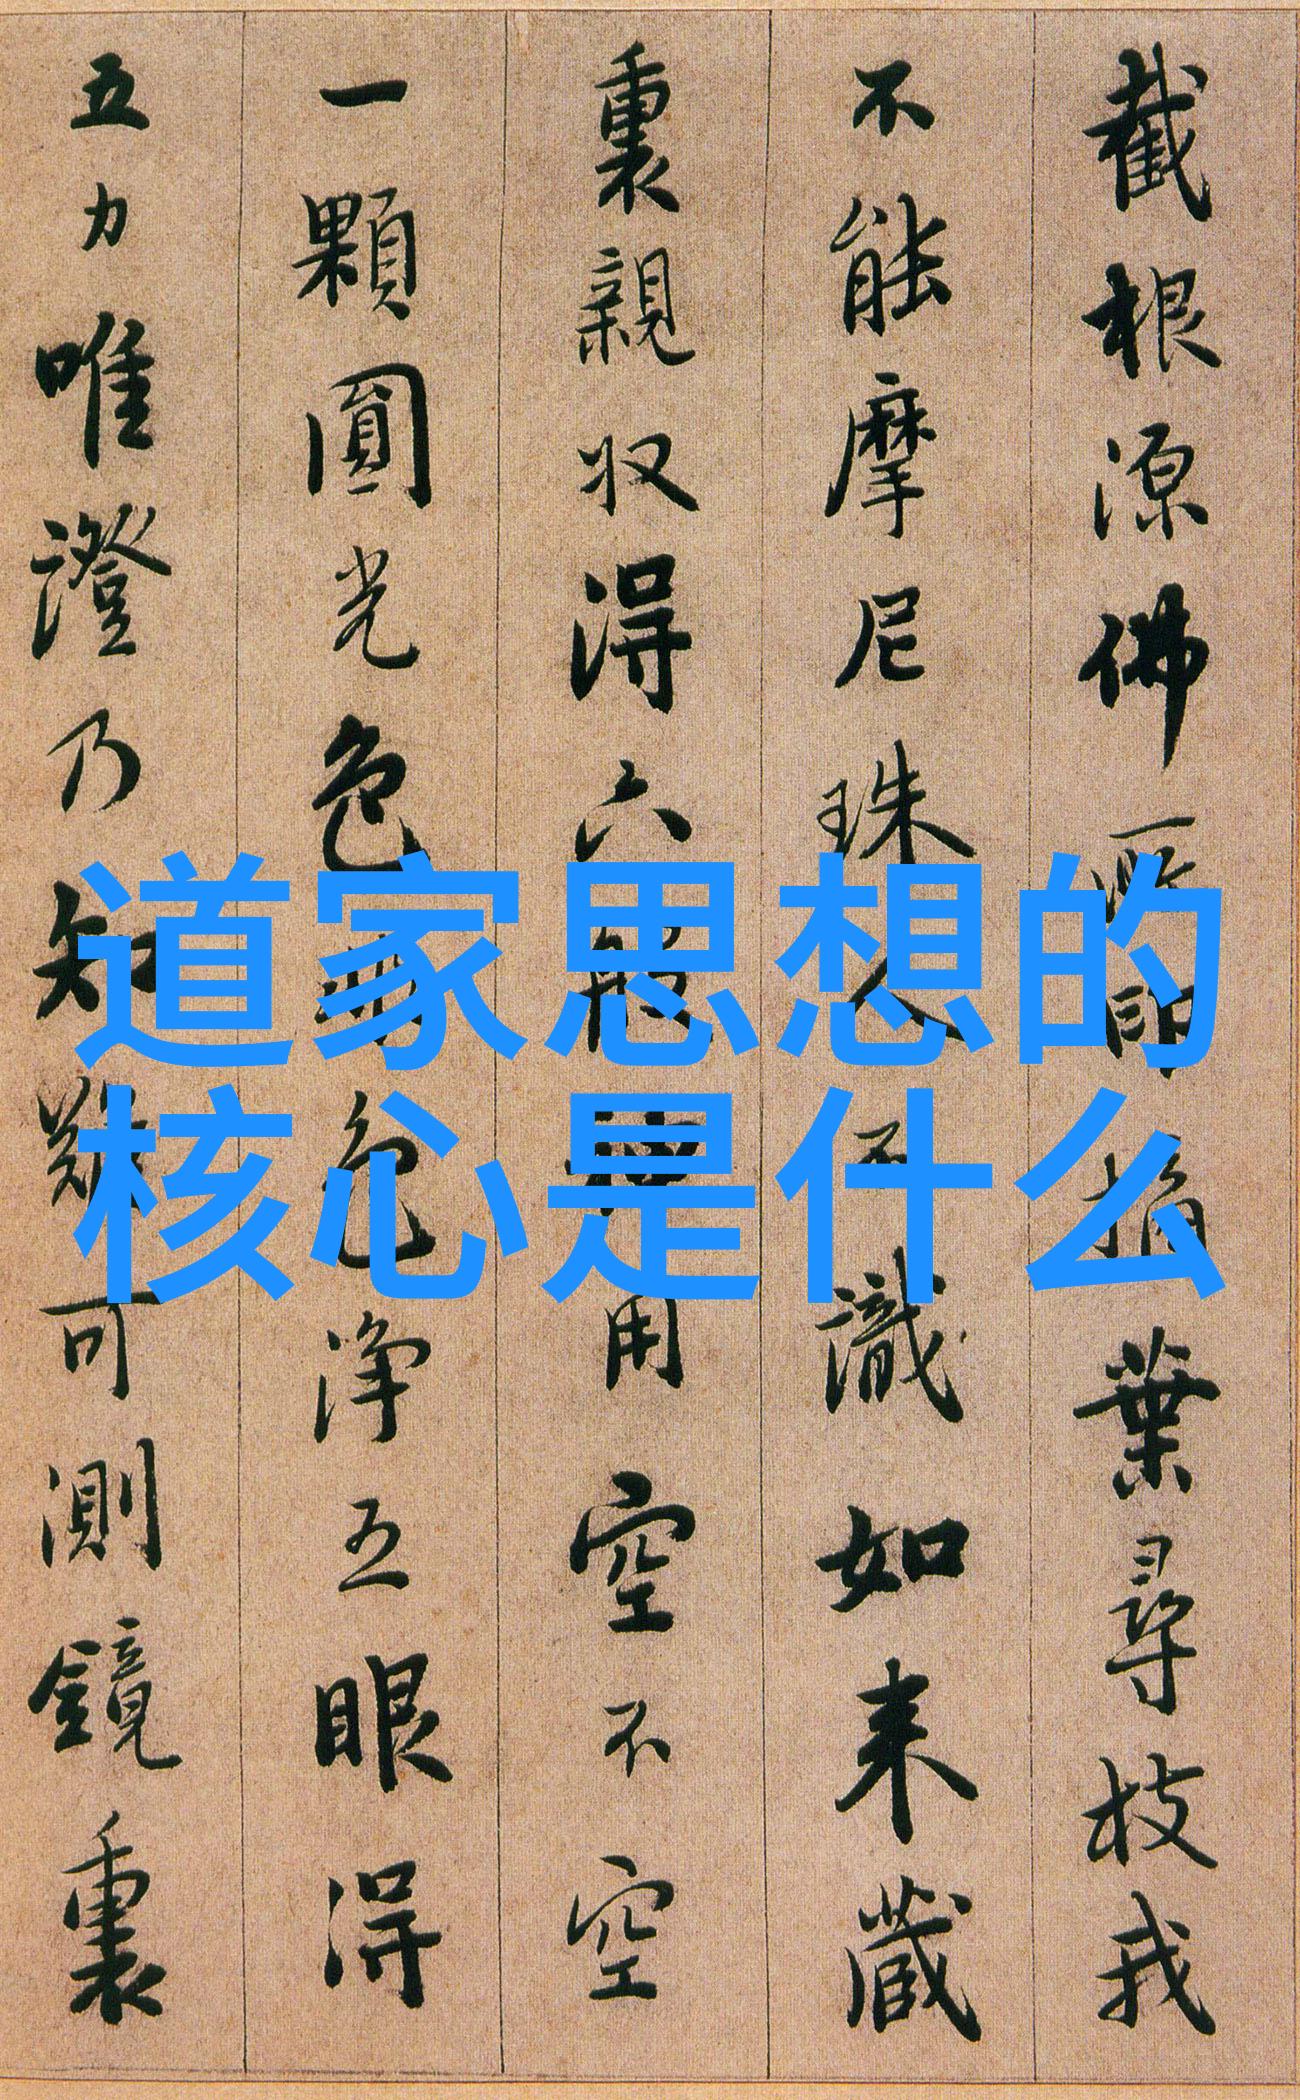 截根源佛所印摘葉尋枝我
不能摩尼珠人不識如来藏
裏親収得六般神用空不空
一顆圓光色非色淨五眼得
五力唯證乃知難可測鏡裏
道家思想的
核心是什么